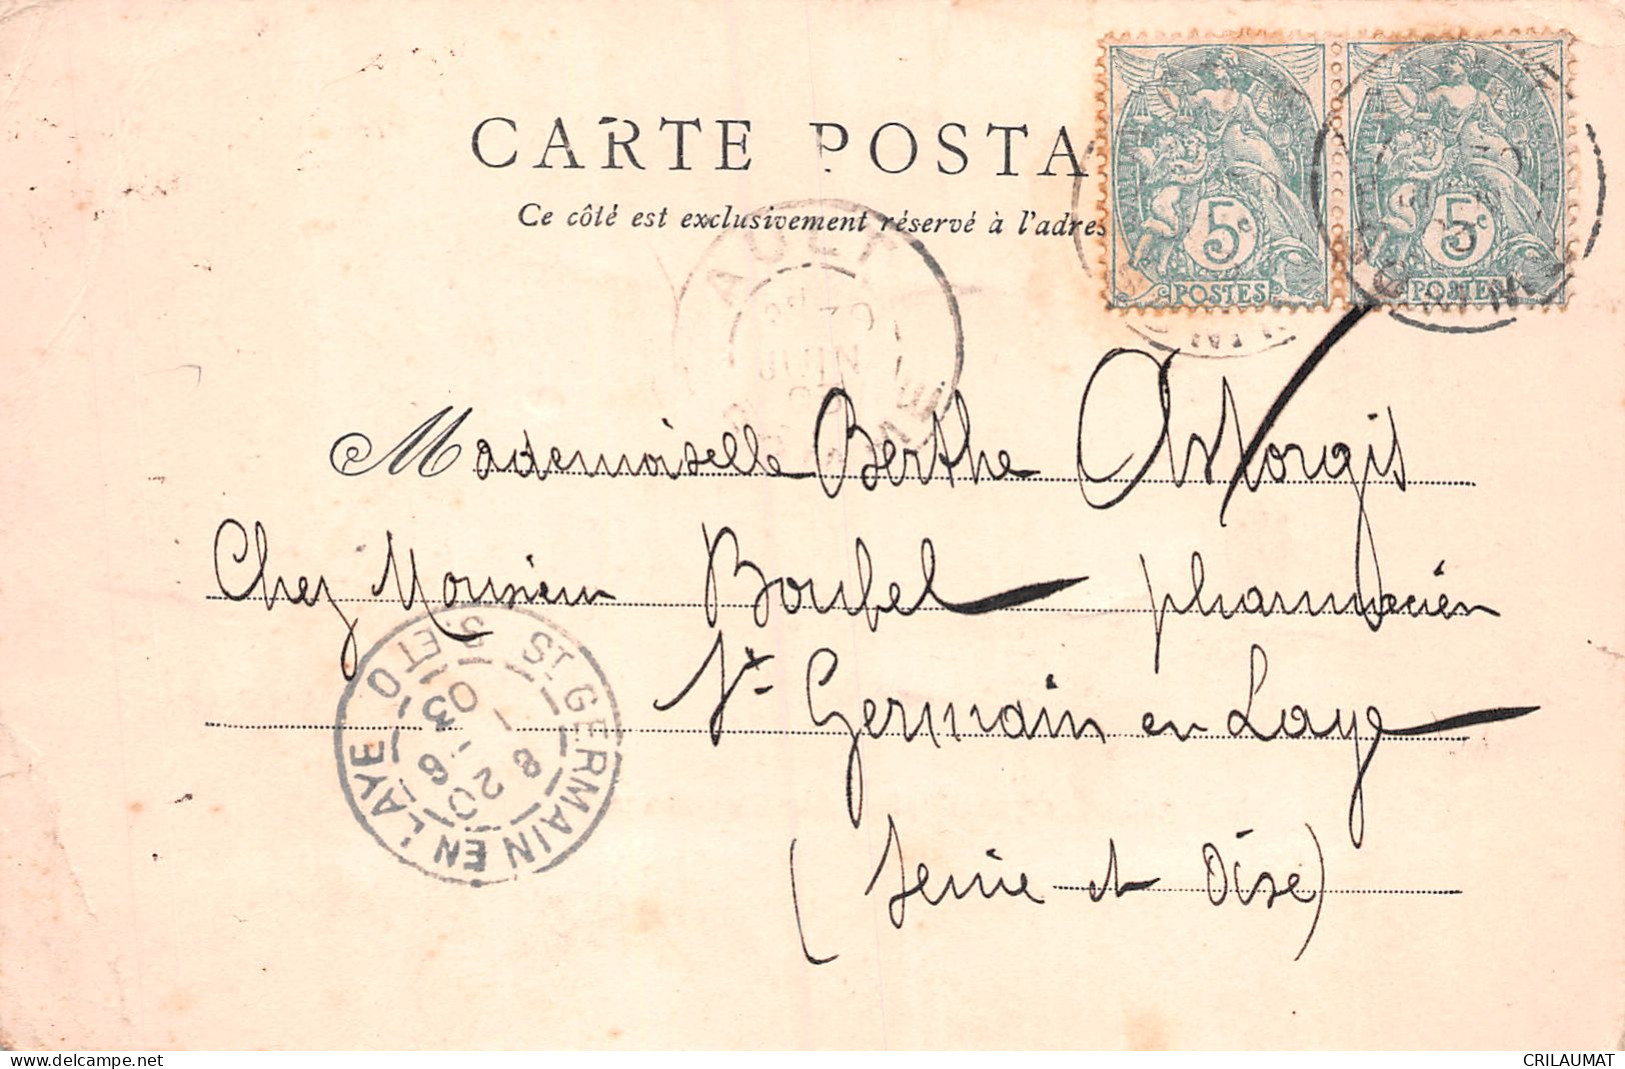 CARTE POSTA
Ce côté est exclusivement réservé à l'adres
5c
POSTES
5c
POSTES
AULT
Mademoiselle Berthe Astorgis
Chez Monsieur Boufel pharmacien
St Germain en Laye
(Seine et Oise)
ST GERMAIN EN LAYE S. ET O.
8
20 - 8
03
www.delcampe.net
CRILAUMAT